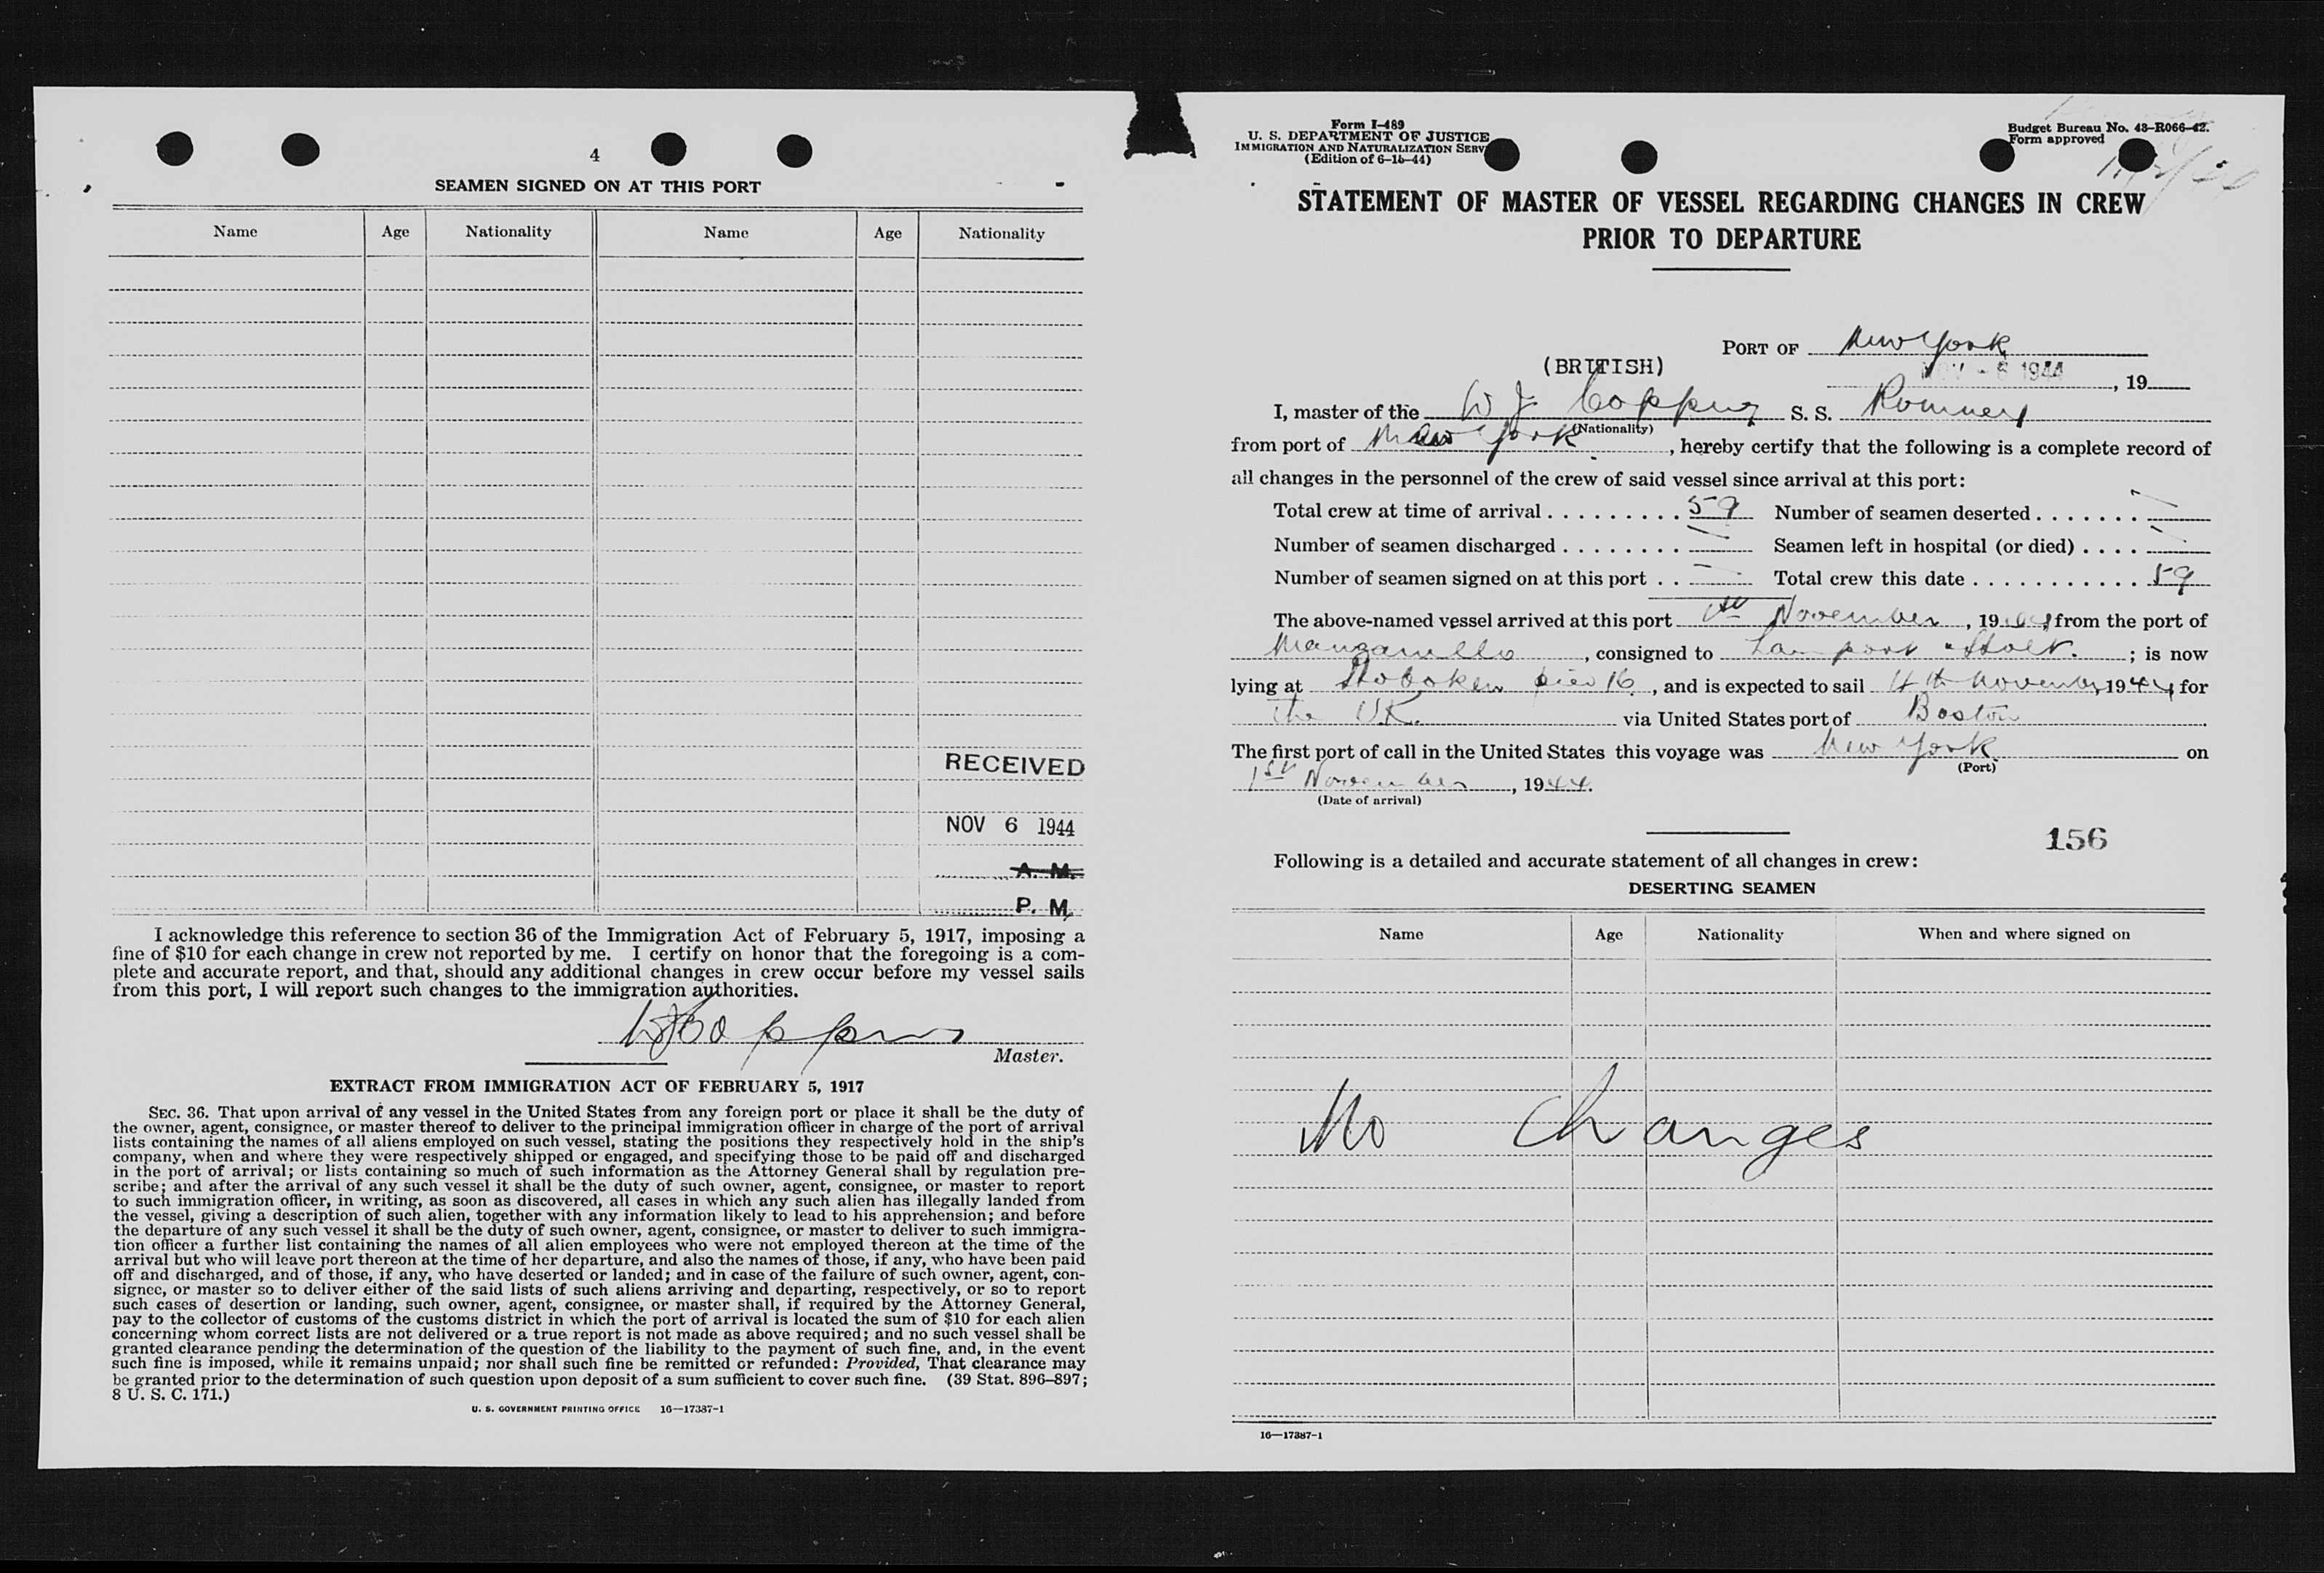 4
SEAMEN SIGNED ON AT THIS PORT
Name Age Nationality Name Age Nationality
RECEIVED
NOV 6 1944
A. M.
P. M.
I acknowledge this reference to section 36 of the Immigration Act of February 5, 1917, imposing a
fine of $10 for each change in crew not reported by me. I certify on honor that the foregoing is a com-
plete and accurate report, and that, should any additional changes in crew occur before my vessel sails
from this port, I will report such changes to the immigration authorities.
Master.
EXTRACT FROM IMMIGRATION ACT OF FEBRUARY 5, 1917
SEC. 36. That upon arrival of any vessel in the United States from any foreign port or place it shall be the duty of
the owner, agent, consignee, or master thereof to deliver to the principal immigration officer in charge of the port of arrival
lists containing the names of all aliens employed on such vessel, stating the positions they respectively hold in the ship's
company, when and where they were respectively shipped or engaged, and specifying those to be paid off and discharged
in the port of arrival; or lists containing so much of such information as the Attorney General shall by regulation pre-
scribe; and after the arrival of any such vessel it shall be the duty of such owner, agent, consignee, or master to report
to such immigration officer, in writing, as soon as discovered, all cases in which any such alien has illegally landed from
the vessel, giving a description of such alien, together with any information likely to lead to his apprehension; and before
the departure of any such vessel it shall be the duty of such owner, agent, consignee, or master to deliver to such immigra-
tion officer a further list containing the names of all alien employees who were not employed thereon at the time of the
arrival but who will leave port thereon at the time of her departure, and also the names of those, if any, who have been paid
off and discharged, and of those, if any, who have deserted or landed; and in case of the failure of such owner, agent, con-
signee, or master so to deliver either of the said lists of such aliens arriving and departing, respectively, or so to report
such cases of desertion or landing, such owner, agent, consignee, or master shall, if required by the Attorney General,
pay to the collector of customs of the customs district in which the port of arrival is located the sum of $10 for each alien
concerning whom correct lists are not delivered or a true report is not made as above required; and no such vessel shall be
granted clearance pending the determination of the question of the liability to the payment of such fine, and, in the event
such fine is imposed, while it remains unpaid; nor shall such fine be remitted or refunded: Provided, That clearance may
be granted prior to the determination of such question upon deposit of a sum sufficient to cover such fine. (39 Stat. 896–897;
8 U. S. C. 171.)
U. S. GOVERNMENT PRINTING OFFICE 16—17387-1
Form I-489
U. S. DEPARTMENT OF JUSTICE
IMMIGRATION AND NATURALIZATION SERV
(Edition of 6-15-44)
Budget Bureau No. 43-R066-42.
Form approved
STATEMENT OF MASTER OF VESSEL REGARDING CHANGES IN CREW
PRIOR TO DEPARTURE
PORT OF New York
(BRITISH)
NOV - 6 1944, 19
I, master of the W J Copping S. S. Romney
(Nationality)
from port of New York, hereby certify that the following is a complete record of
all changes in the personnel of the crew of said vessel since arrival at this port:
Total crew at time of arrival 59 Number of seamen deserted —
Number of seamen discharged — Seamen left in hospital (or died) —
Number of seamen signed on at this port — Total crew this date 59
The above-named vessel arrived at this port 1st November, 1944 from the port of
Manzanillo, consigned to Lamport & Holt.; is now
lying at Hoboken pier 16, and is expected to sail 4th November 1944, for
The U.K. via United States port of Boston
The first port of call in the United States this voyage was New York on
(Port)
1st November, 1944.
(Date of arrival)
156
Following is a detailed and accurate statement of all changes in crew:
DESERTING SEAMEN
Name Age Nationality When and where signed on
No Changes
16—17387-1